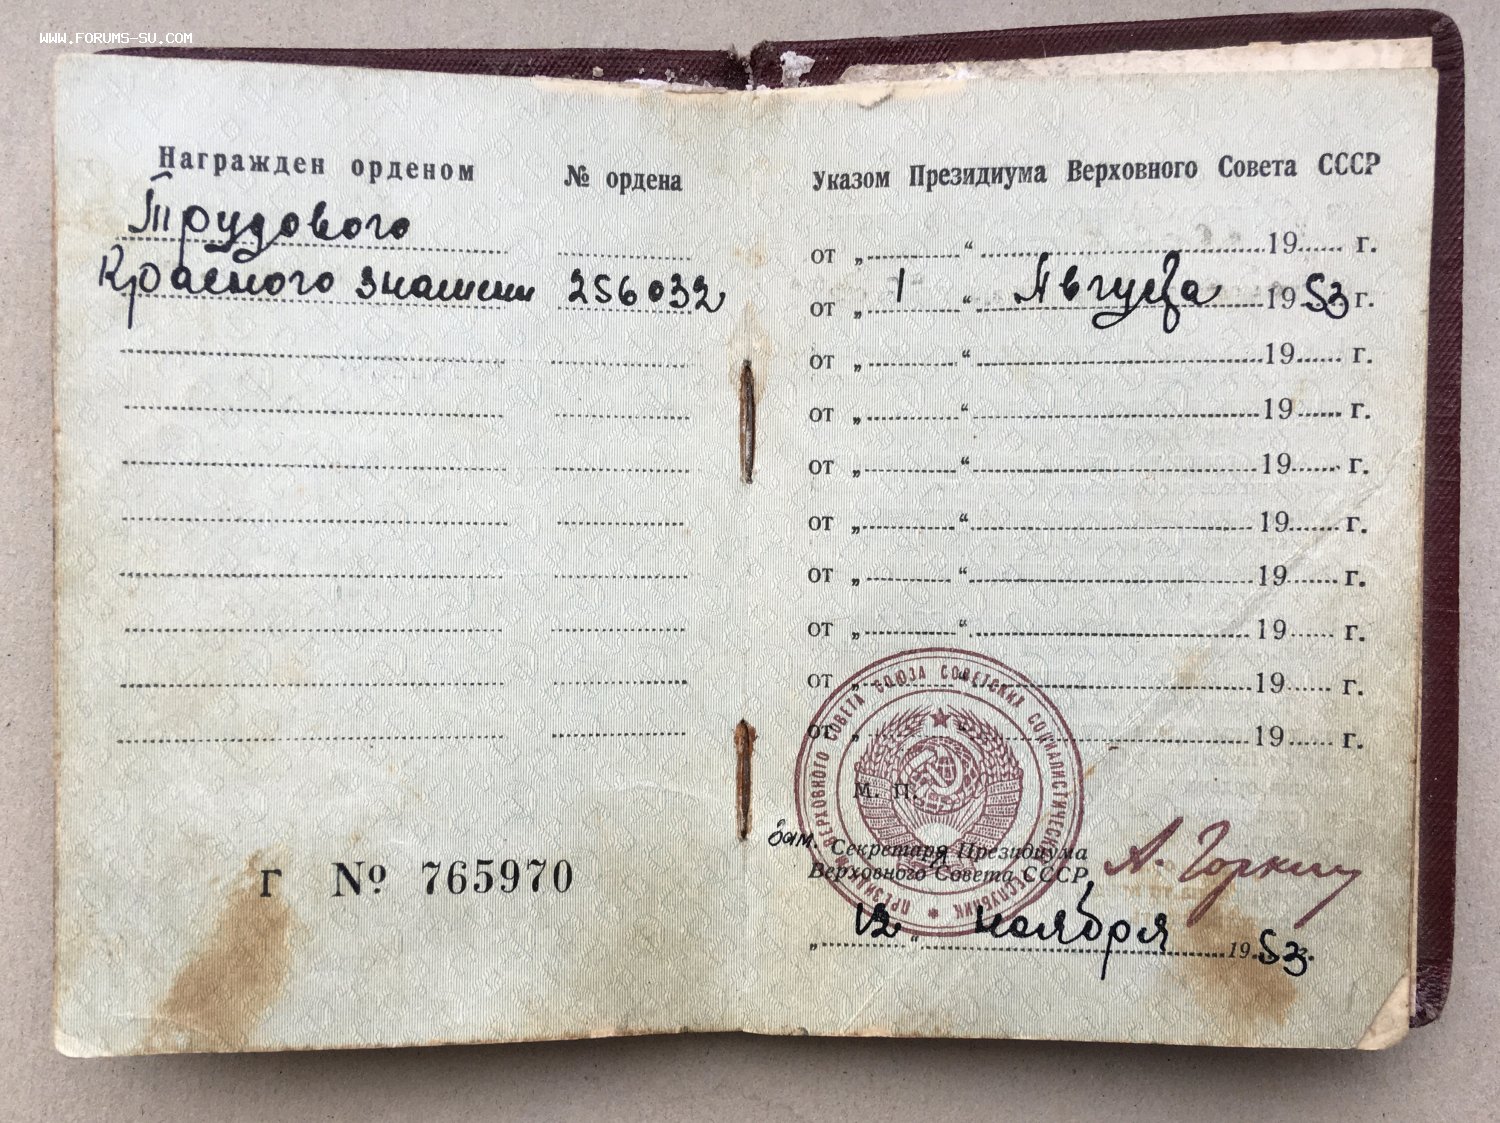 WWW.FORUMS-SU.COM
Награжден орденом № ордена
Трудового
Красного знамени 256032
Г № 765970
Указом Президиума Верховного Совета СССР
от „ “ 19 г.
от „ 1 “ Августа 19 53 г.
от „ “ 19 г.
от „ “ 19 г.
от „ “ 19 г.
от „ “ 19 г.
от „ “ 19 г.
от „ “ 19 г.
от „ “ 19 г.
от „ “ 19 г.
ПРЕЗИДИУМ ВЕРХОВНОГО СОВЕТА СОЮЗА СОВЕТСКИХ СОЦИАЛИСТИЧЕСКИХ РЕСПУБЛИК
М. П.
Зам. Секретаря Президиума
Верховного Совета СССР
А. Горкин
„ 12 “ ноября 19 53 г.